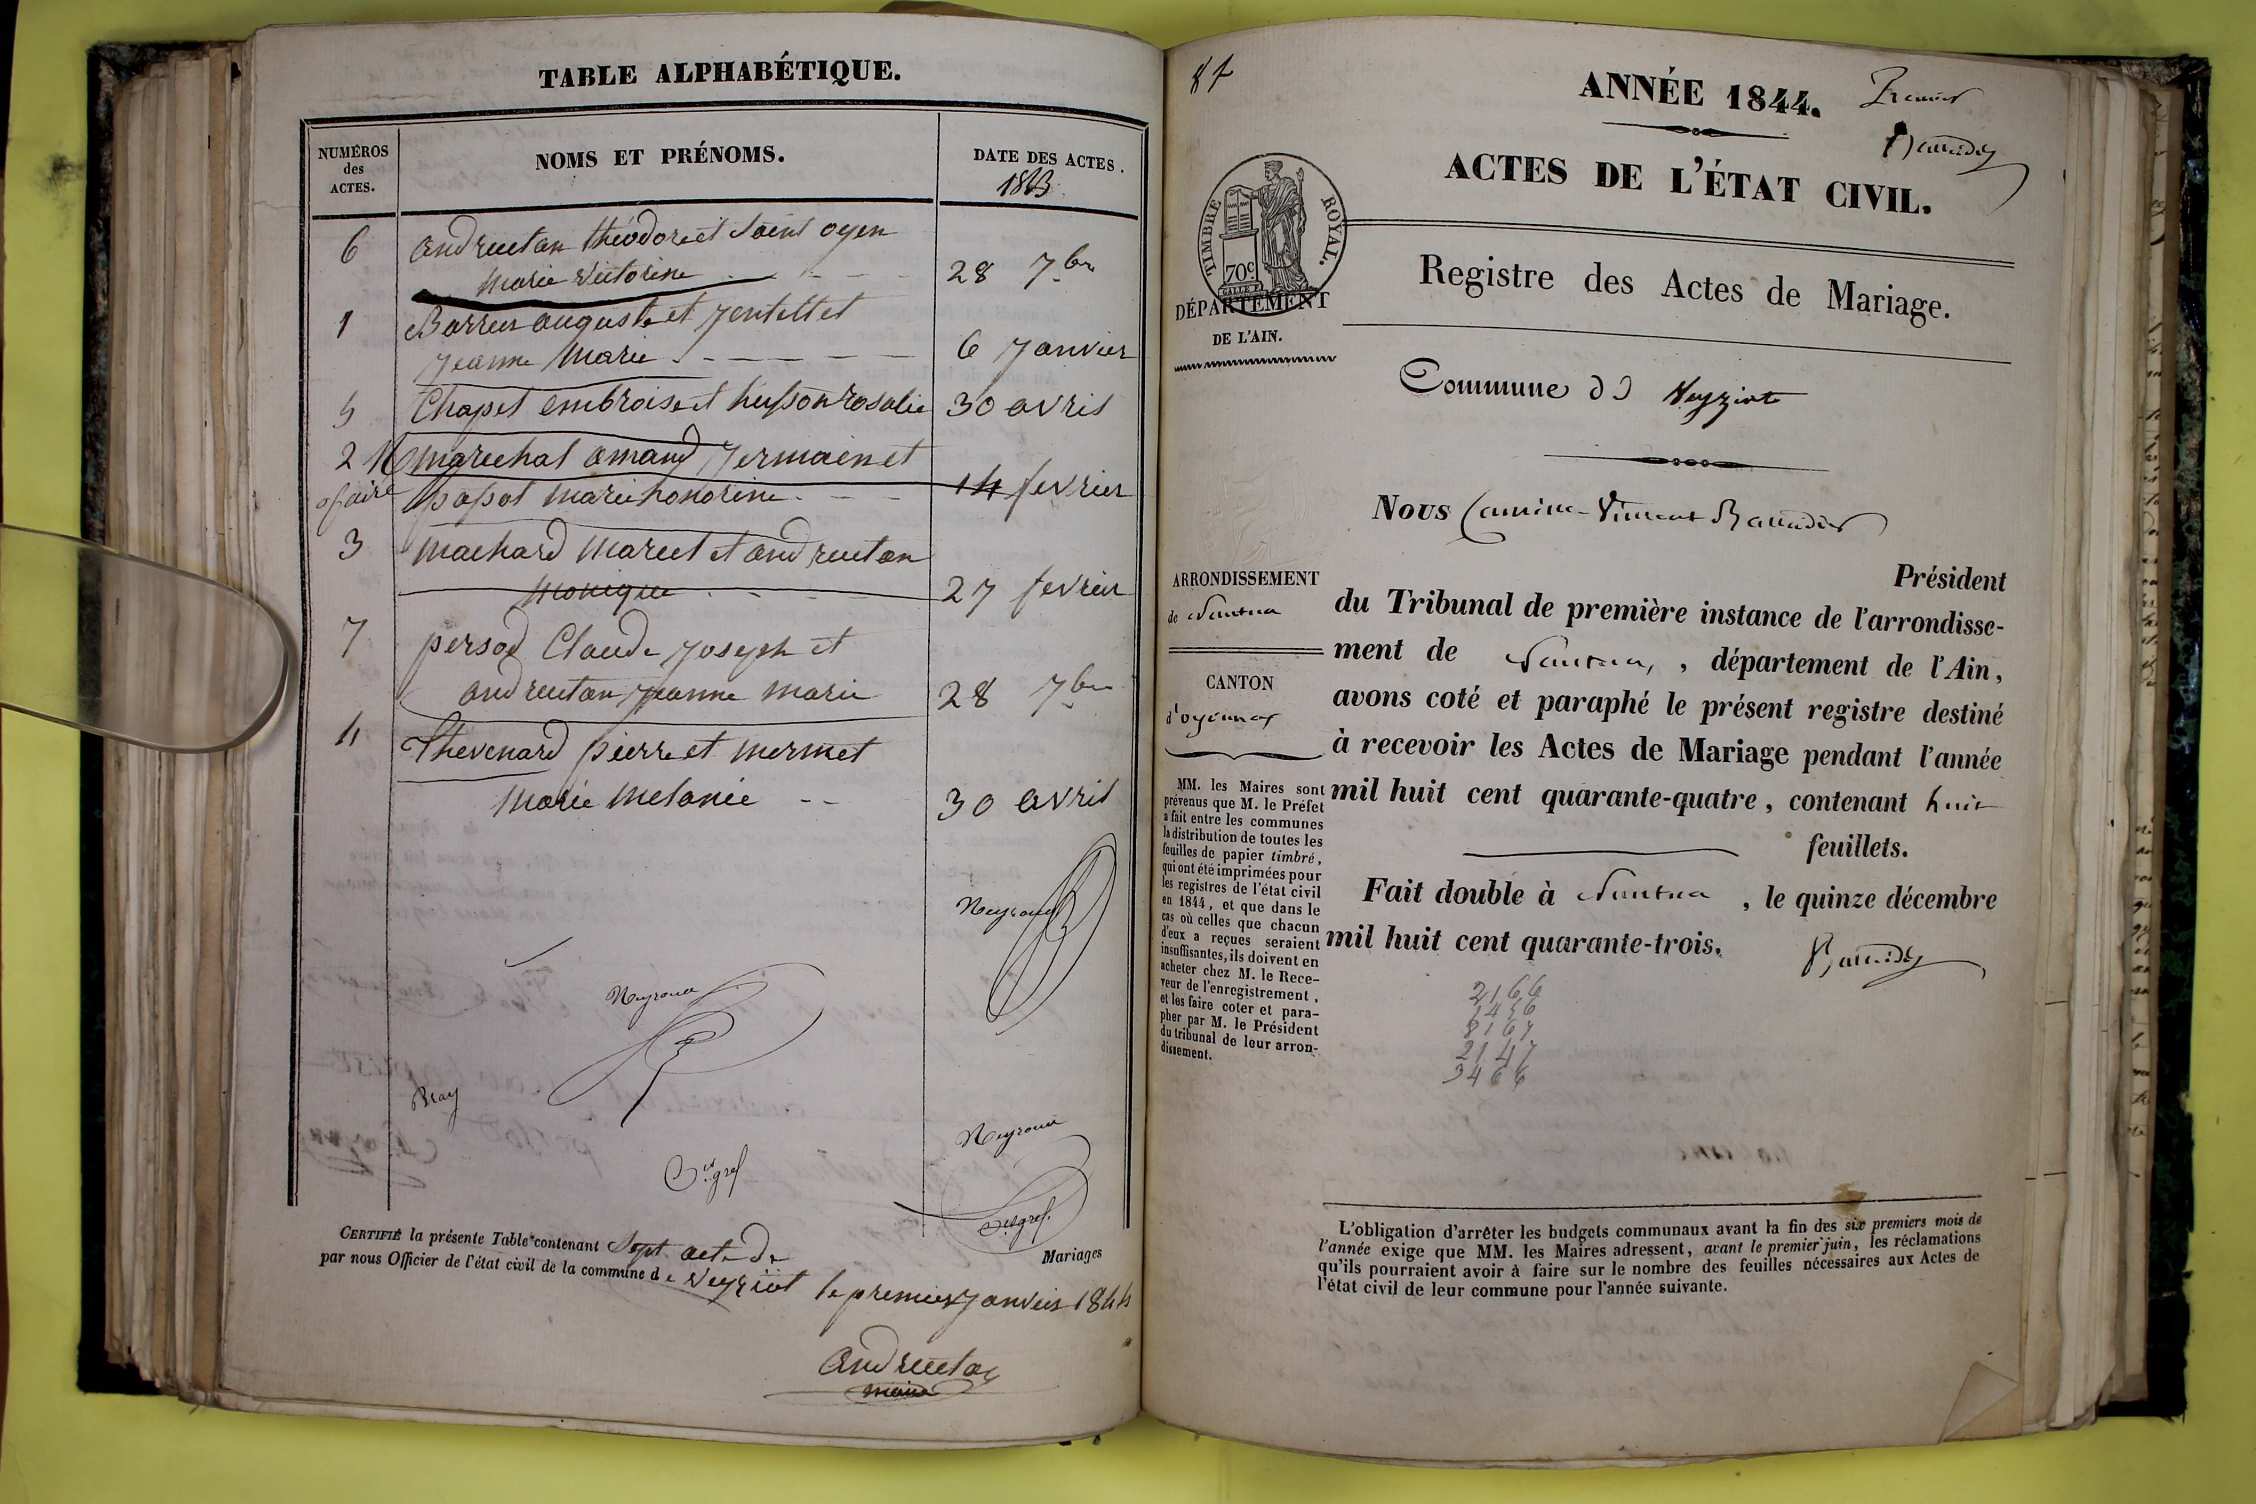 TABLE ALPHABÉTIQUE.
NUMÉROS
des
ACTES.
NOMS ET PRÉNOMS.
DATE DES ACTES.
1843
6 andruetan théodore et Saint oyen
Marie Victorine 28 7bre
1 Barrus auguste et Jentet et
Jeanne Marie 6 Janvier
5 Chapet embroise et husson rosalie 30 avril
2 Marechal amand Germain et
papot Marie honorine 14 fevrier
3 Machard Marcel et andruetan
Monique 27 fevrier
7 persod Claude Joseph et
andruetan Jeanne Marie 28 7bre
4 Thevenard pierre et mermet
Marie Melanie 30 avril
Neyroud
Neyroud
Bray
Neyroud
CERTIFIÉ la présente Table contenant Sept acte de Mariages
par nous Officier de l'état civil de la commune de Veyziat le premier Janvier 1844
Andruetan
maire
87
ANNÉE 1844. Premier
ACTES DE L'ÉTAT CIVIL.
TIMBRE ROYAL.
70c
DÉPARTEMENT
DE L'AIN.
Registre des Actes de Mariage.
Commune de Veyziat
Nous Camille-Vincent
Président
du Tribunal de première instance de l'arrondisse-
ment de Nantua, , département de l'Ain,
avons coté et paraphé le présent registre destiné
à recevoir les Actes de Mariage pendant l'année
mil huit cent quarante-quatre, contenant huit
feuillets.
Fait double à Nantua , le quinze décembre
mil huit cent quarante-trois.
ARRONDISSEMENT
de Nantua
CANTON
d'oyonnax
MM. les Maires sont
prévenus que M. le Préfet
a fait entre les communes
la distribution de toutes les
feuilles de papier timbré,
qui ont été imprimées pour
les registres de l'état civil
en 1844, et que dans le
cas où celles que chacun
d'eux a reçues seraient
insuffisantes, ils doivent en
acheter chez M. le Rece-
veur de l'enregistrement,
et les faire coter et para-
pher par M. le Président
du tribunal de leur arron-
dissement.
2166
3456
8167
2147
3466
L'obligation d'arrêter les budgets communaux avant la fin des six premiers mois de
l'année exige que MM. les Maires adressent, avant le premier juin, les réclamations
qu'ils pourraient avoir à faire sur le nombre des feuilles nécessaires aux Actes de
l'état civil de leur commune pour l'année suivante.